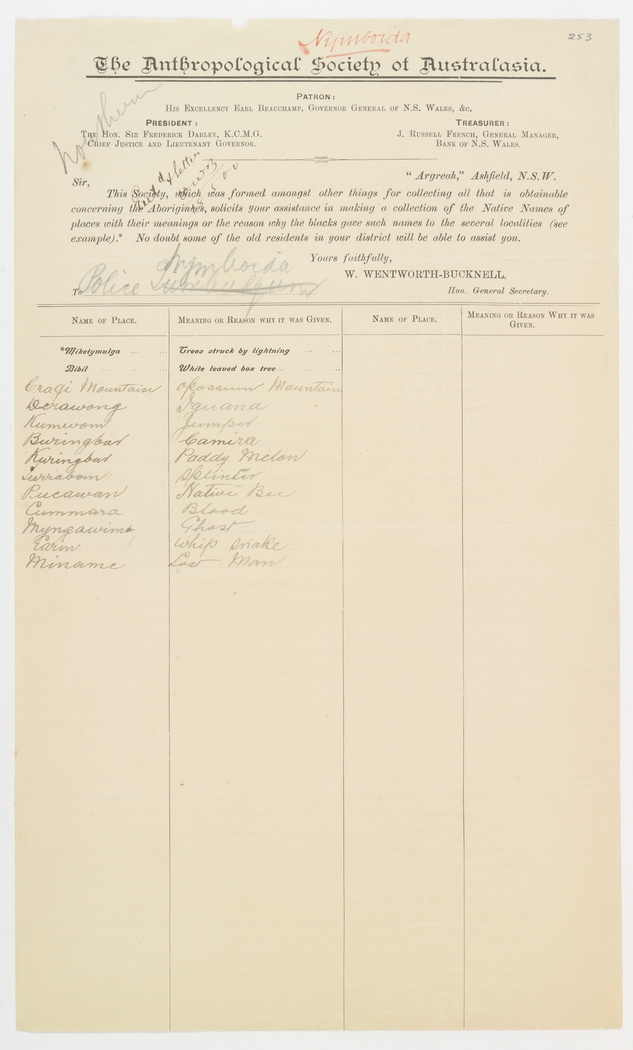 Nymboida
253
The Anthropological Society of Australasia.
Northern
PATRON:
HIS EXCELLENCY EARL BEAUCHAMP, GOVERNOR GENERAL OF N.S. WALES, &c.
PRESIDENT:
THE HON. SIR FREDERICK DARLEY, K.C.M.G.
CHIEF JUSTICE AND LIEUTENANT GOVERNOR.
TREASURER:
J. RUSSELL FRENCH, GENERAL MANAGER,
BANK OF N.S. WALES.
& letter
"Argreah," Ashfield, N.S.W.
Sir,
This Society, which was formed amongst other things for collecting all that is obtainable
concerning the Aborigines, solicits your assistance in making a collection of the Native Names of
places with their meanings or the reason why the blacks gave such names to the several localities (see
example).* No doubt some of the old residents in your district will be able to assist you.
Yours faithfully,
W. WENTWORTH-BUCKNELL,
Hon. General Secretary.
Nymboida
To Police
NAME OF PLACE. MEANING OR REASON WHY IT WAS GIVEN. NAME OF PLACE. MEANING OR REASON WHY IT WAS GIVEN.
*Miketymulga ... ... Trees struck by lightning ... ...
Bibil ... ... White leaved box tree ... ...
Cragi Mountain Opossum Mountain
Derawong Iguana
Kumevom Jumper
Buringbar Camira
Kuringbar Paddy Melon
Splinter
Pucawan Native Bee
Cummara Blood
Ghost
Tarin Whip Snake
Miname Lost Man